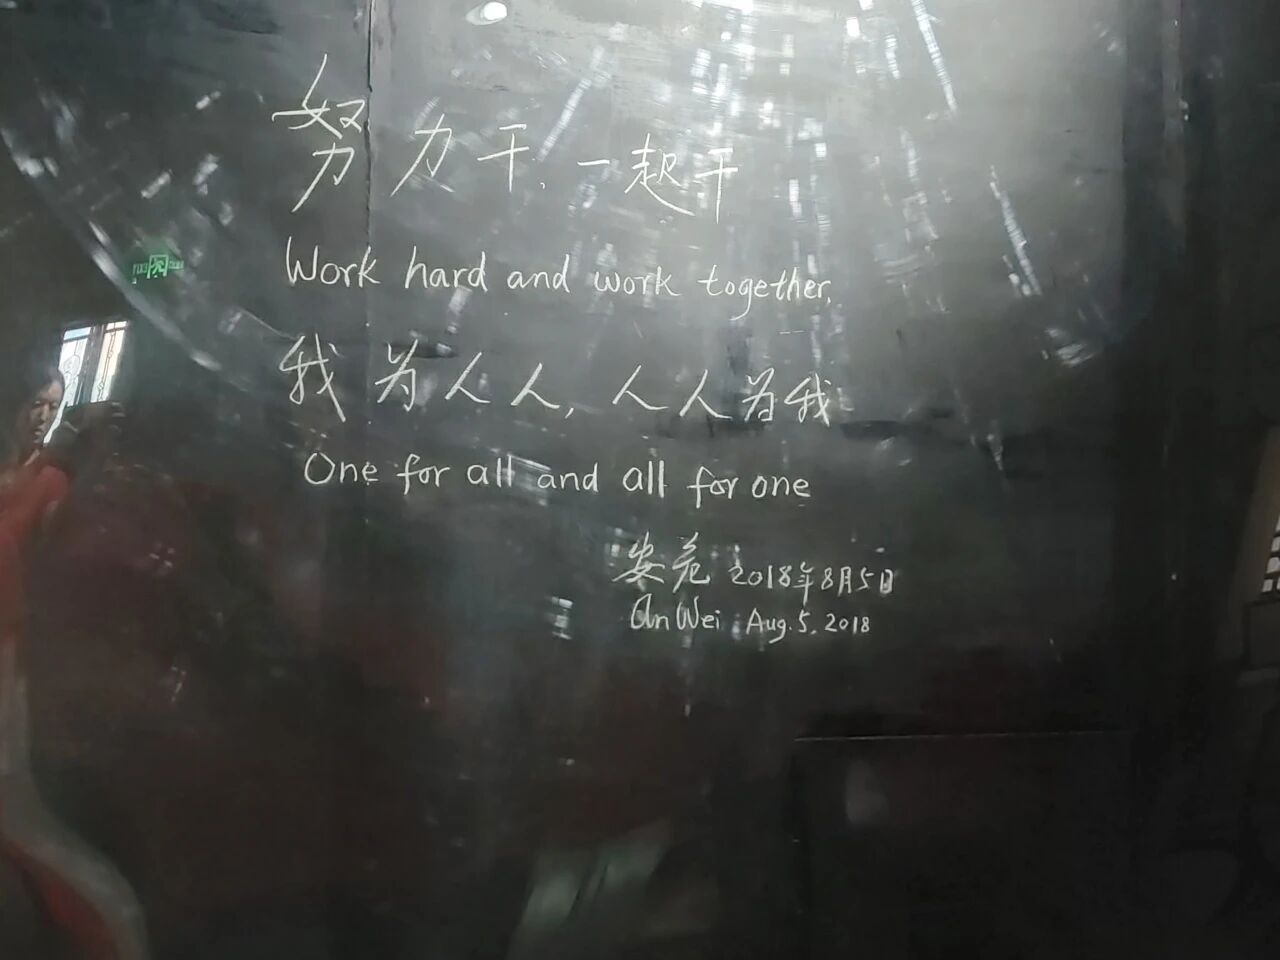 努力干,一起干
Work hard and work together.
我为人人,人人为我
One for all and all for one
安危 2018年8月5日
An Wei Aug. 5, 2018